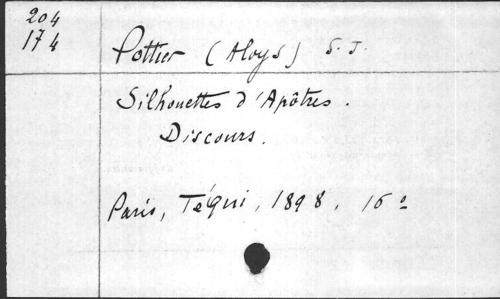 204
174
Pottier (Aloys) S. J.
Silhouettes d'Apôtres.
Discours.
Paris, Téqui, 1898. 16°